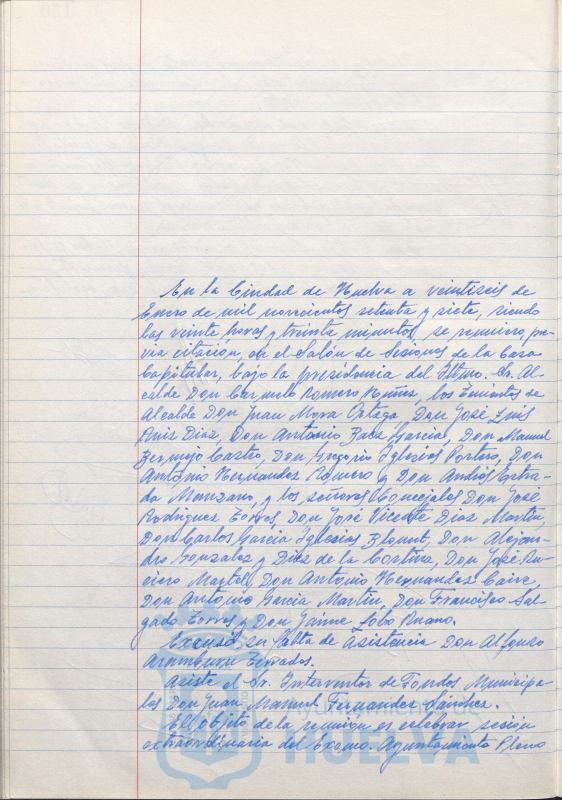 En la Ciudad de Huelva a veintiseis de
Enero de mil novecientos setenta y siete, siendo
las veinte horas y treinta minutos se reunieron, pre-
via citación, en el Salón de Sesiones de la Casa
Capitular, bajo la presidencia del Iltmo. Sr. Al-
calde Don Carmelo Romero Núñez, los Tenientes de
Alcalde Don Juan Mora Ortega, Don José Luis
Ruiz Diaz, Don Antonio Baez Garcia, Don Manuel
Bermejo Castro, Don Gregorio Iglesias Portero, Don
Antonio Hernandez Romero y Don Andrés Estra-
da Manzano, y los señores Concejales Don José
Rodriguez Torres, Don José Vicente Diaz Martin,
Don Carlos Garcia Iglesias Blount, Don Alejan-
dro Gonzalez y Diez de la Cortina, Don José Ru-
ciero Martell, Don Antonio Hernandez Caire,
Don Antonio Garcia Martin, Don Francisco Sal-
gado Torres y Don Jaime Lobo
Excusó su falta de asistencia Don Alfonso
Aramburu Terrados.
Asiste el Sr. Interventor de Fondos Municipa-
les Don Juan Manuel Fernandez Sánchez.
El objeto de la reunión es celebrar sesión
extraordinaria del Excmo. Ayuntamiento Pleno
HUELVA